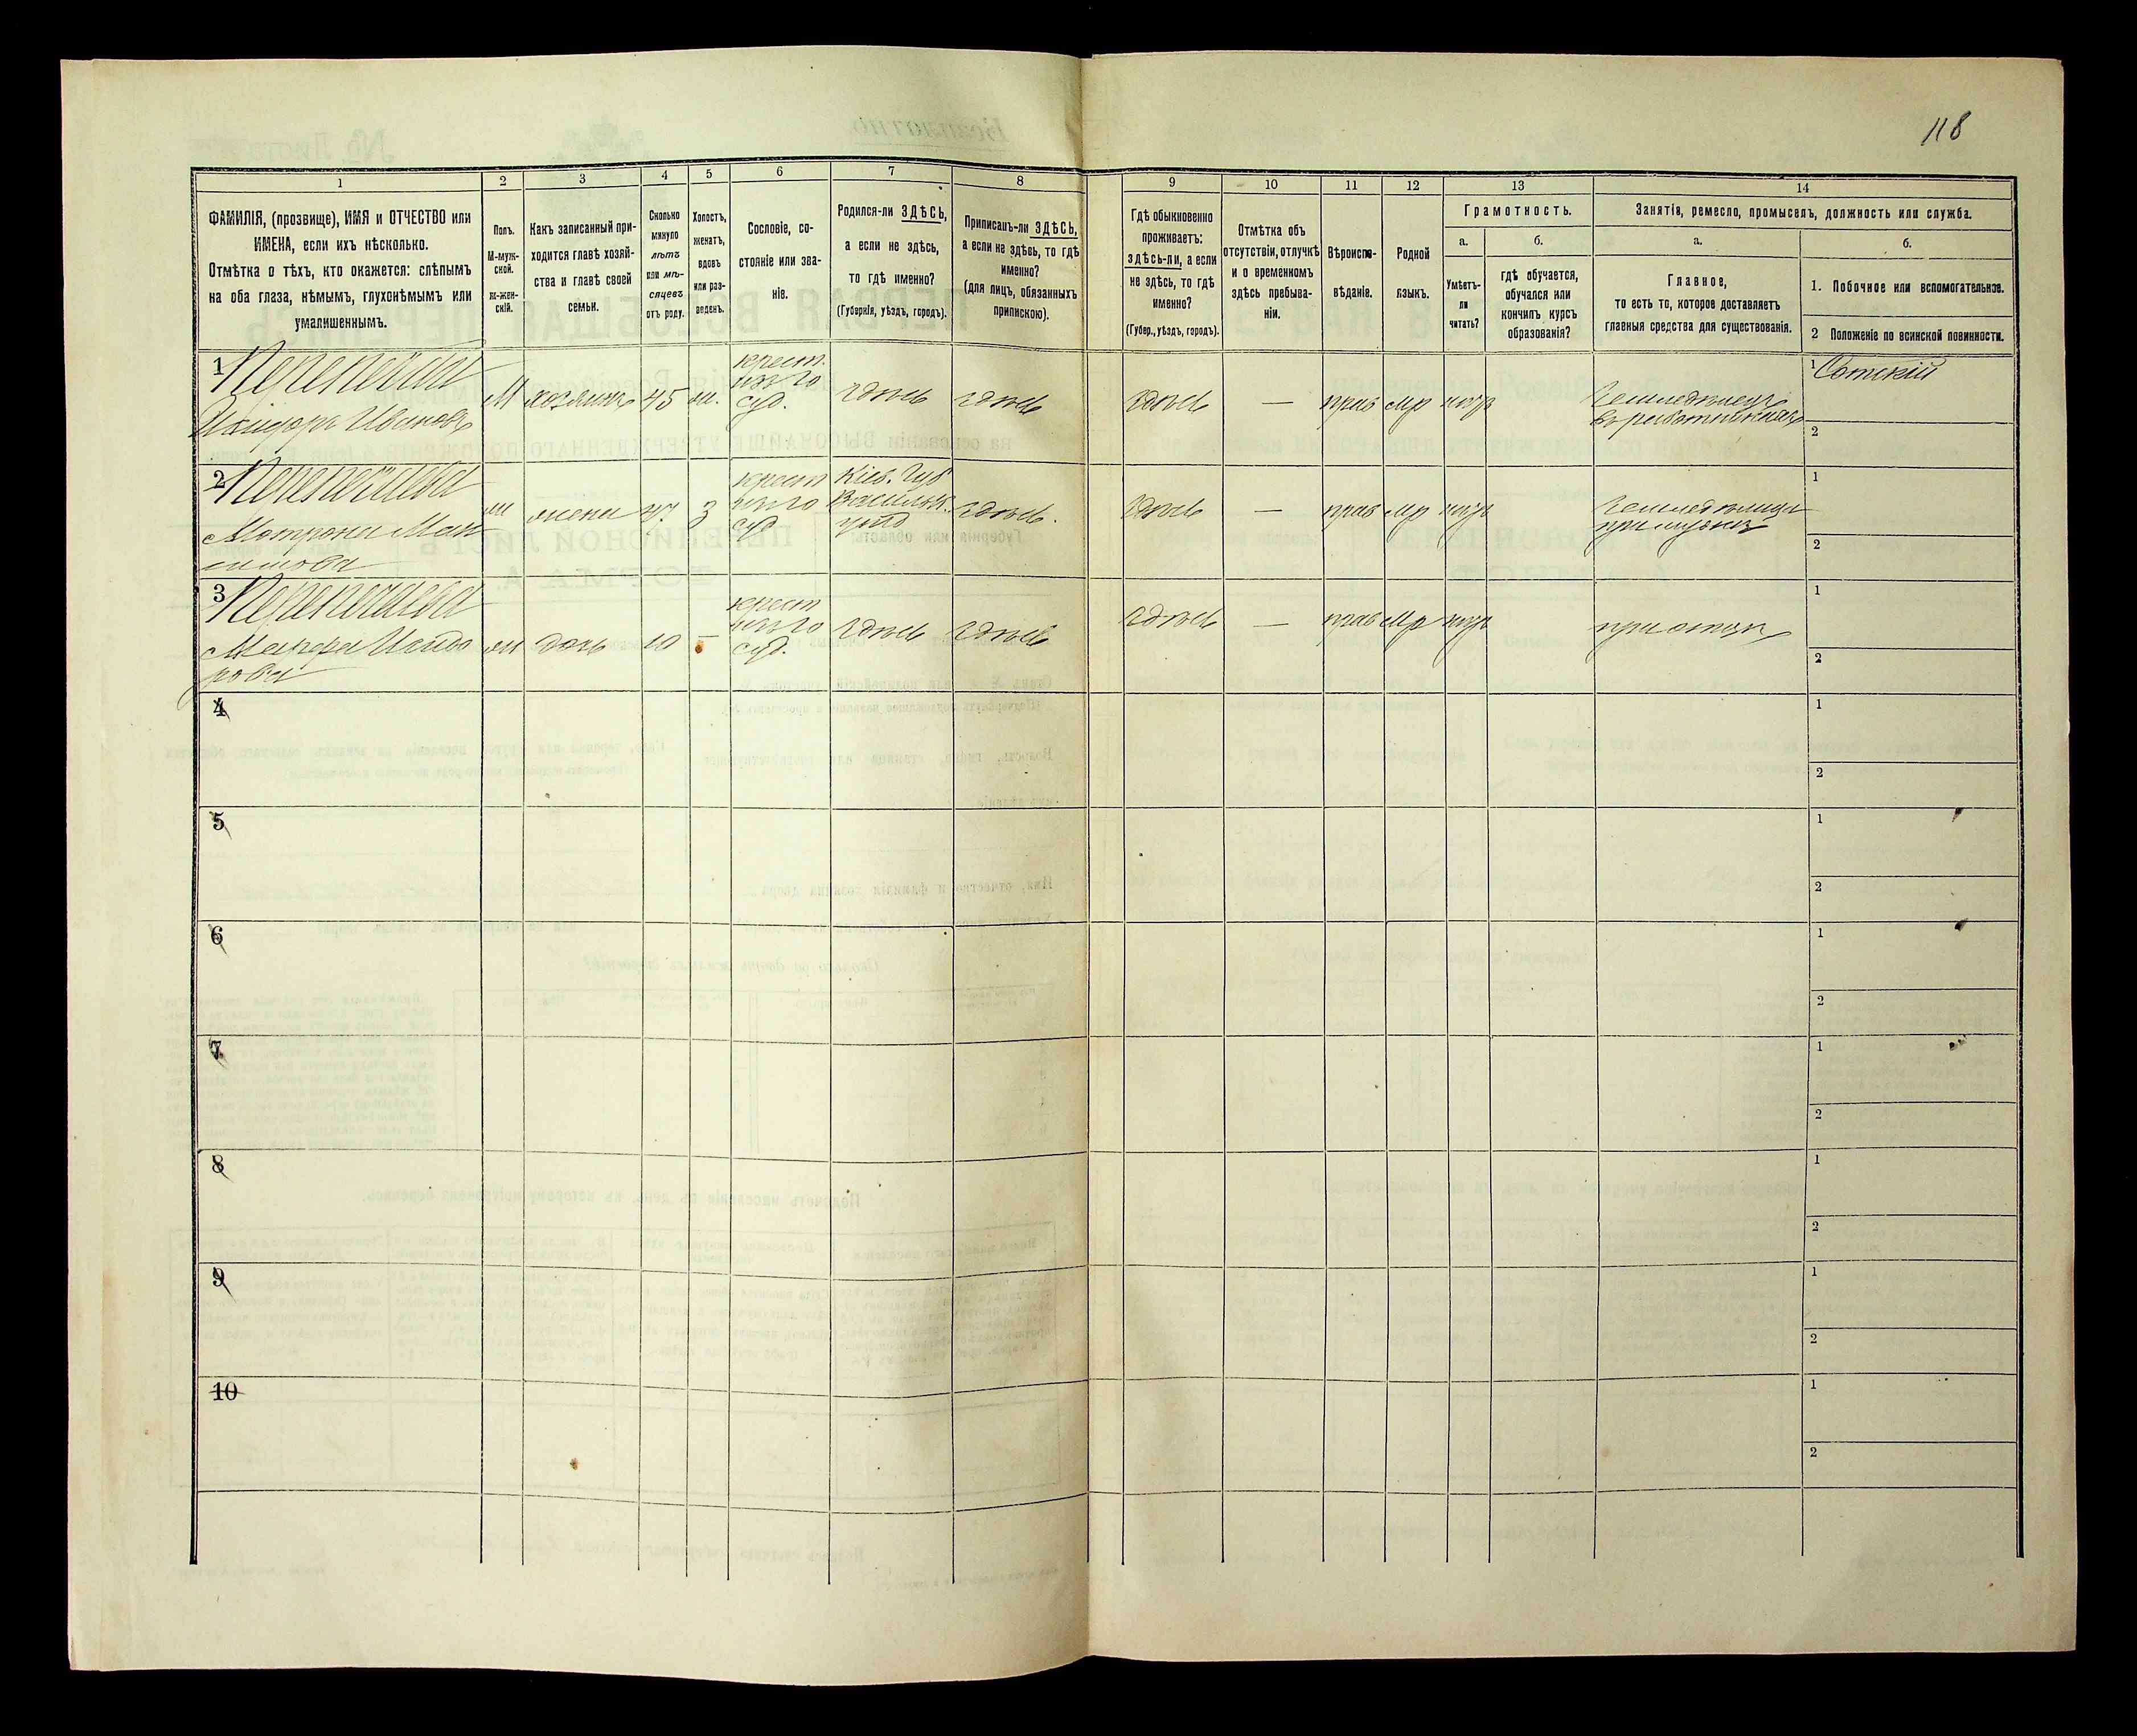 118
1
2
3
4
5
6
7
8
9
10
11
12
13
14
ФАМИЛІЯ, (прозвище), ИМЯ и ОТЧЕСТВО или
ИМЕНА, если ихъ нѣсколько.
Отмѣтка о тѣхъ, кто окажется: слѣпымъ
на оба глаза, нѣмымъ, глухонѣмымъ или
умалишеннымъ.
Полъ.
М-муж-
ской.
ж-жен-
скій.
Какъ записанный при-
ходится главѣ хозяй-
ства и главѣ своей
семьи.
Сколько
минуло
лѣтъ
или мѣ-
сяцевъ
отъ роду.
Холостъ,
женатъ,
вдовъ
или раз-
веденъ.
Сословіе, со-
стояніе или зва-
ніе.
Родился-ли ЗДѢСЬ,
а если не здѣсь,
то гдѣ именно?
(Губернія, уѣздъ, городъ).
Приписанъ-ли ЗДѢСЬ,
а если не здѣсь, то гдѣ
именно?
(для лицъ, обязанныхъ
припискою).
Гдѣ обыкновенно
проживаетъ:
здѣсь-ли, а если
не здѣсь, то гдѣ
именно?
(Губер., уѣздъ, городъ).
Отмѣтка объ
отсутствіи, отлучкѣ
и о временномъ
здѣсь пребыва-
ніи.
Вѣроиспо-
вѣданіе.
Родной
языкъ.
Грамотность.
а.
Умѣетъ-
ли
читать?
б.
гдѣ обучается,
обучался или
кончилъ курсъ
образованія?
Занятіе, ремесло, промыселъ, должность или служба.
а.
Главное,
то есть то, которое доставляетъ
главныя средства для существованія.
б.
1. Побочное или вспомогательное.
2 Положеніе по воинской повинности.
1
Исидоръ Ивановъ
М
хозяинъ
45
ж.
крест.
изъ го
суд.
здѣсь
здѣсь
здѣсь
—
прав
мр
нѣтъ
Земледѣлецъ
1 Сотскій
2
2
Матрона Мак
симова
ж
жена
з
крест
изъ го
суд
Кіев. Губ
Васильк.
уѣзд
здѣсь.
здѣсь
—
прав
мр
нѣтъ
Земледѣлица
при мужѣ
1
2
3
Исидо
рова
ж
дочь
10
—
крест
изъ го
суд.
здѣсь
здѣсь
здѣсь
—
прав
мр
нѣтъ
при отцѣ
1
2
4
1
2
5
1
2
6
1
2
7
1
2
8
1
2
9
1
2
10
1
2